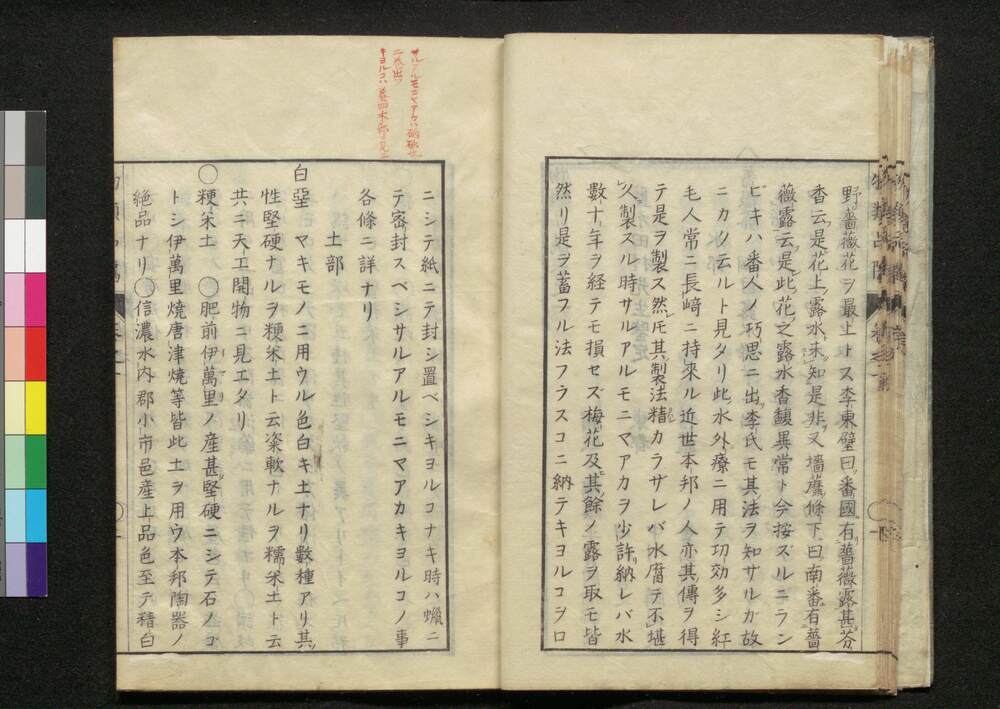 野薔薇花ヲ最上トス李東璧曰番國有薔薇露甚芬
香云是花上露水未知是非又墻蘼條下曰南番有薔
薇露云是此花之露水香馥異常ト今按ズルニラン
ビキハ番人ノ巧思ニ出李氏モ其法ヲ知サルカ故
ニカク云ルト見タリ此水外療ニ用テ功効多シ紅
毛人常ニ長﨑ニ持來ル近世本邦ノ人亦其傳ヲ得
テ是ヲ製ス然𪜈其製法精カラザレバ水腐テ不堪
久製スル時サルアルモニマアカヲ少許納レバ水
數十年ヲ経テモ損セズ梅花及其餘ノ露ヲ取モ皆
然リ是ヲ蓋フル法フラスコニ納テキヨルコヲロ
サルアルモニマアカハ
キヨルコハ
ニシテ紙ニテ封シ置ベシキヨルコナキ時ハ蠟ニ
テ密封スベシサルアルモニマアカキヨルコノ事
各條ニ詳ナリ
土部
白堊 マキモノニ用ウル色白キ土ナリ數種アリ其
性堅硬ナルヲ粳米土ト云粢軟ナルヲ糯米土ト云
共ニ天工開物ニ見エタリ
○粳米土 ○肥前伊萬里ノ産甚堅硬ニシテ石ノゴ
トシ伊萬里焼唐津焼等皆此土ヲ用ウ本邦陶器ノ
絶品ナリ○信濃水内郡小市邑産上品色至テ䊧白